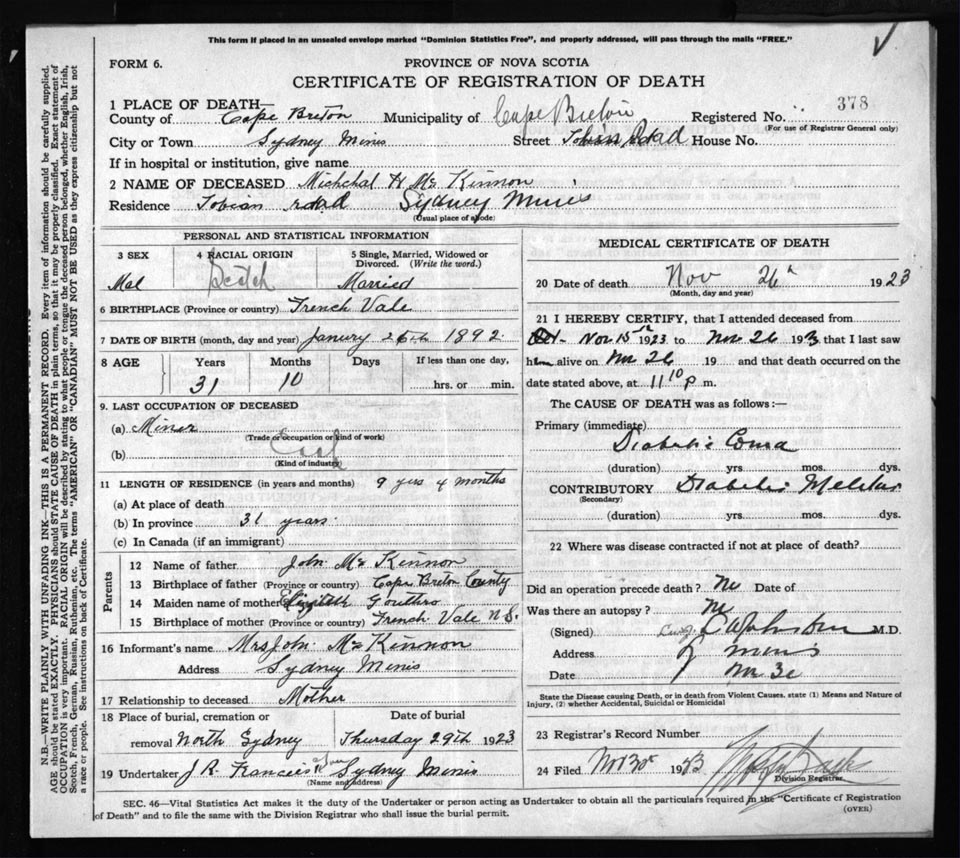 This form if placed in an unsealed envelope marked "Dominion Statistics Free", and properly addressed, will pass through the mails "FREE."
FORM 6.
PROVINCE OF NOVA SCOTIA
CERTIFICATE OF REGISTRATION OF DEATH
378
1 PLACE OF DEATH—
County of Cape Breton Municipality of Cape Breton Registered No.
(For use of Registrar General only)
City or Town Sydney Mines Street Tobian Road House No.
If in hospital or institution, give name
2 NAME OF DECEASED Michchal H Mc Kinnon
Residence Tobian road Sydney Mines
(Usual place of abode)
PERSONAL AND STATISTICAL INFORMATION
3 SEX
4 RACIAL ORIGIN
5 Single, Married, Widowed or Divorced. (Write the word.)
Mal
Scotch
Married
6 BIRTHPLACE (Province or country) French Vale
7 DATE OF BIRTH (month, day and year) Janury 26th 1892
8 AGE
Years
Months
Days
If less than one day,
31
10
hrs. or min.
9. LAST OCCUPATION OF DECEASED
(a) Miner
(Trade or occupation or kind of work)
(b) Coal
(Kind of industry)
11 LENGTH OF RESIDENCE (in years and months) 9 yrs 4 months
(a) At place of death
(b) In province 31 years
(c) In Canada (if an immigrant)
Parents
12 Name of father John Mc Kinnon
13 Birthplace of father (Province or country) Cape Breton County
14 Maiden name of mother Elizabeth Gouthro
15 Birthplace of mother (Province or country) French Vale N.S.
16 Informant's name Mrs John Mc Kinnon
Address Sydney Mines
17 Relationship to deceased Mother
18 Place of burial, cremation or
Date of burial
removal North Sydney Thursday 29th 1923
19 Undertaker J R Francis & Son Sydney Mines
(Name and address)
MEDICAL CERTIFICATE OF DEATH
20 Date of death Nov 26 1923
(Month, day and year)
21 I HEREBY CERTIFY, that I attended deceased from
Nov 15 1923 to Nov. 26 1923 that I last saw
him alive on Nov 26 19 and that death occurred on the
date stated above, at 11 10 P m.
The CAUSE OF DEATH was as follows:—
Primary (immediate)
Diabetic Coma
(duration) yrs. mos. dys.
CONTRIBUTORY Diabetes Mellitus
(Secondary)
(duration) yrs. mos. dys.
22 Where was disease contracted if not at place of death?
Did an operation precede death? No Date of
Was there an autopsy? No
(Signed) M.D.
Address S Mines
Date Nov 30
State the Disease causing Death, or in death from Violent Causes, state (1) Means and Nature of Injury, (2) whether Accidental, Suicidal or Homicidal
23 Registrar's Record Number
24 Filed Nov 30 1923
Division Registrar
SEC. 46—Vital Statistics Act makes it the duty of the Undertaker or person acting as Undertaker to obtain all the particulars required in the "Certificate of Registration
of Death" and to file the same with the Division Registrar who shall issue the burial permit.
(OVER)
N.B.—WRITE PLAINLY WITH UNFADING INK—THIS IS A PERMANENT RECORD. Every item of information should be carefully supplied.
AGE should be stated EXACTLY. PHYSICIANS should STATE CAUSE OF DEATH in plain terms, so that it may be properly classified. Exact statement of
OCCUPATION is very important. RACIAL ORIGIN will be described by stating to what people or tongue the deceased person belonged, whether English, Irish,
Scotch, French, German, Russian, Ruthenian, etc. The terms "AMERICAN" or "CANADIAN" MUST NOT BE USED as they express citizenship but not
a race or people. See instructions on back of Certificate.